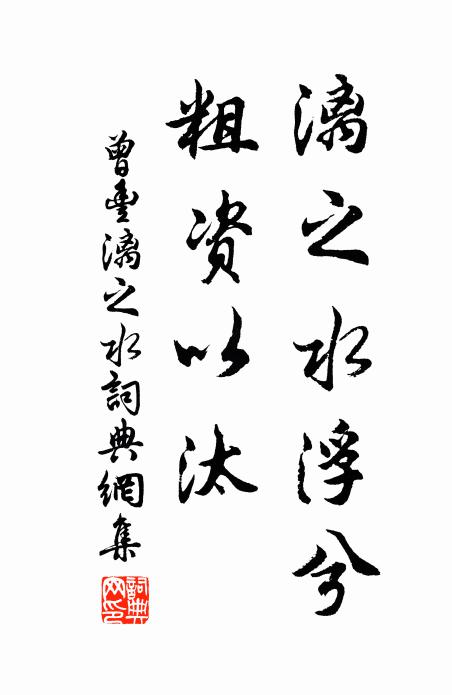 漓之水浮兮
粗资以汰
曾豐漓之水詞典網集
詞典網印